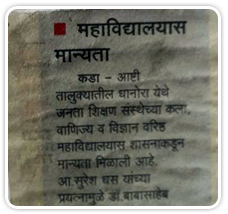 महाविद्यालयास
मान्यता
कडा - आष्टी
तालुक्यातील धानोरा येथे
जनता शिक्षण संस्थेच्या कला,
वाणिज्य व विज्ञान वरिष्ठ
महाविद्यालयास शासनाकडून
मान्यता मिळाली आहे.
आ.सुरेश धस यांच्या
प्रयत्नामुळे डॉ.बाबासाहेब